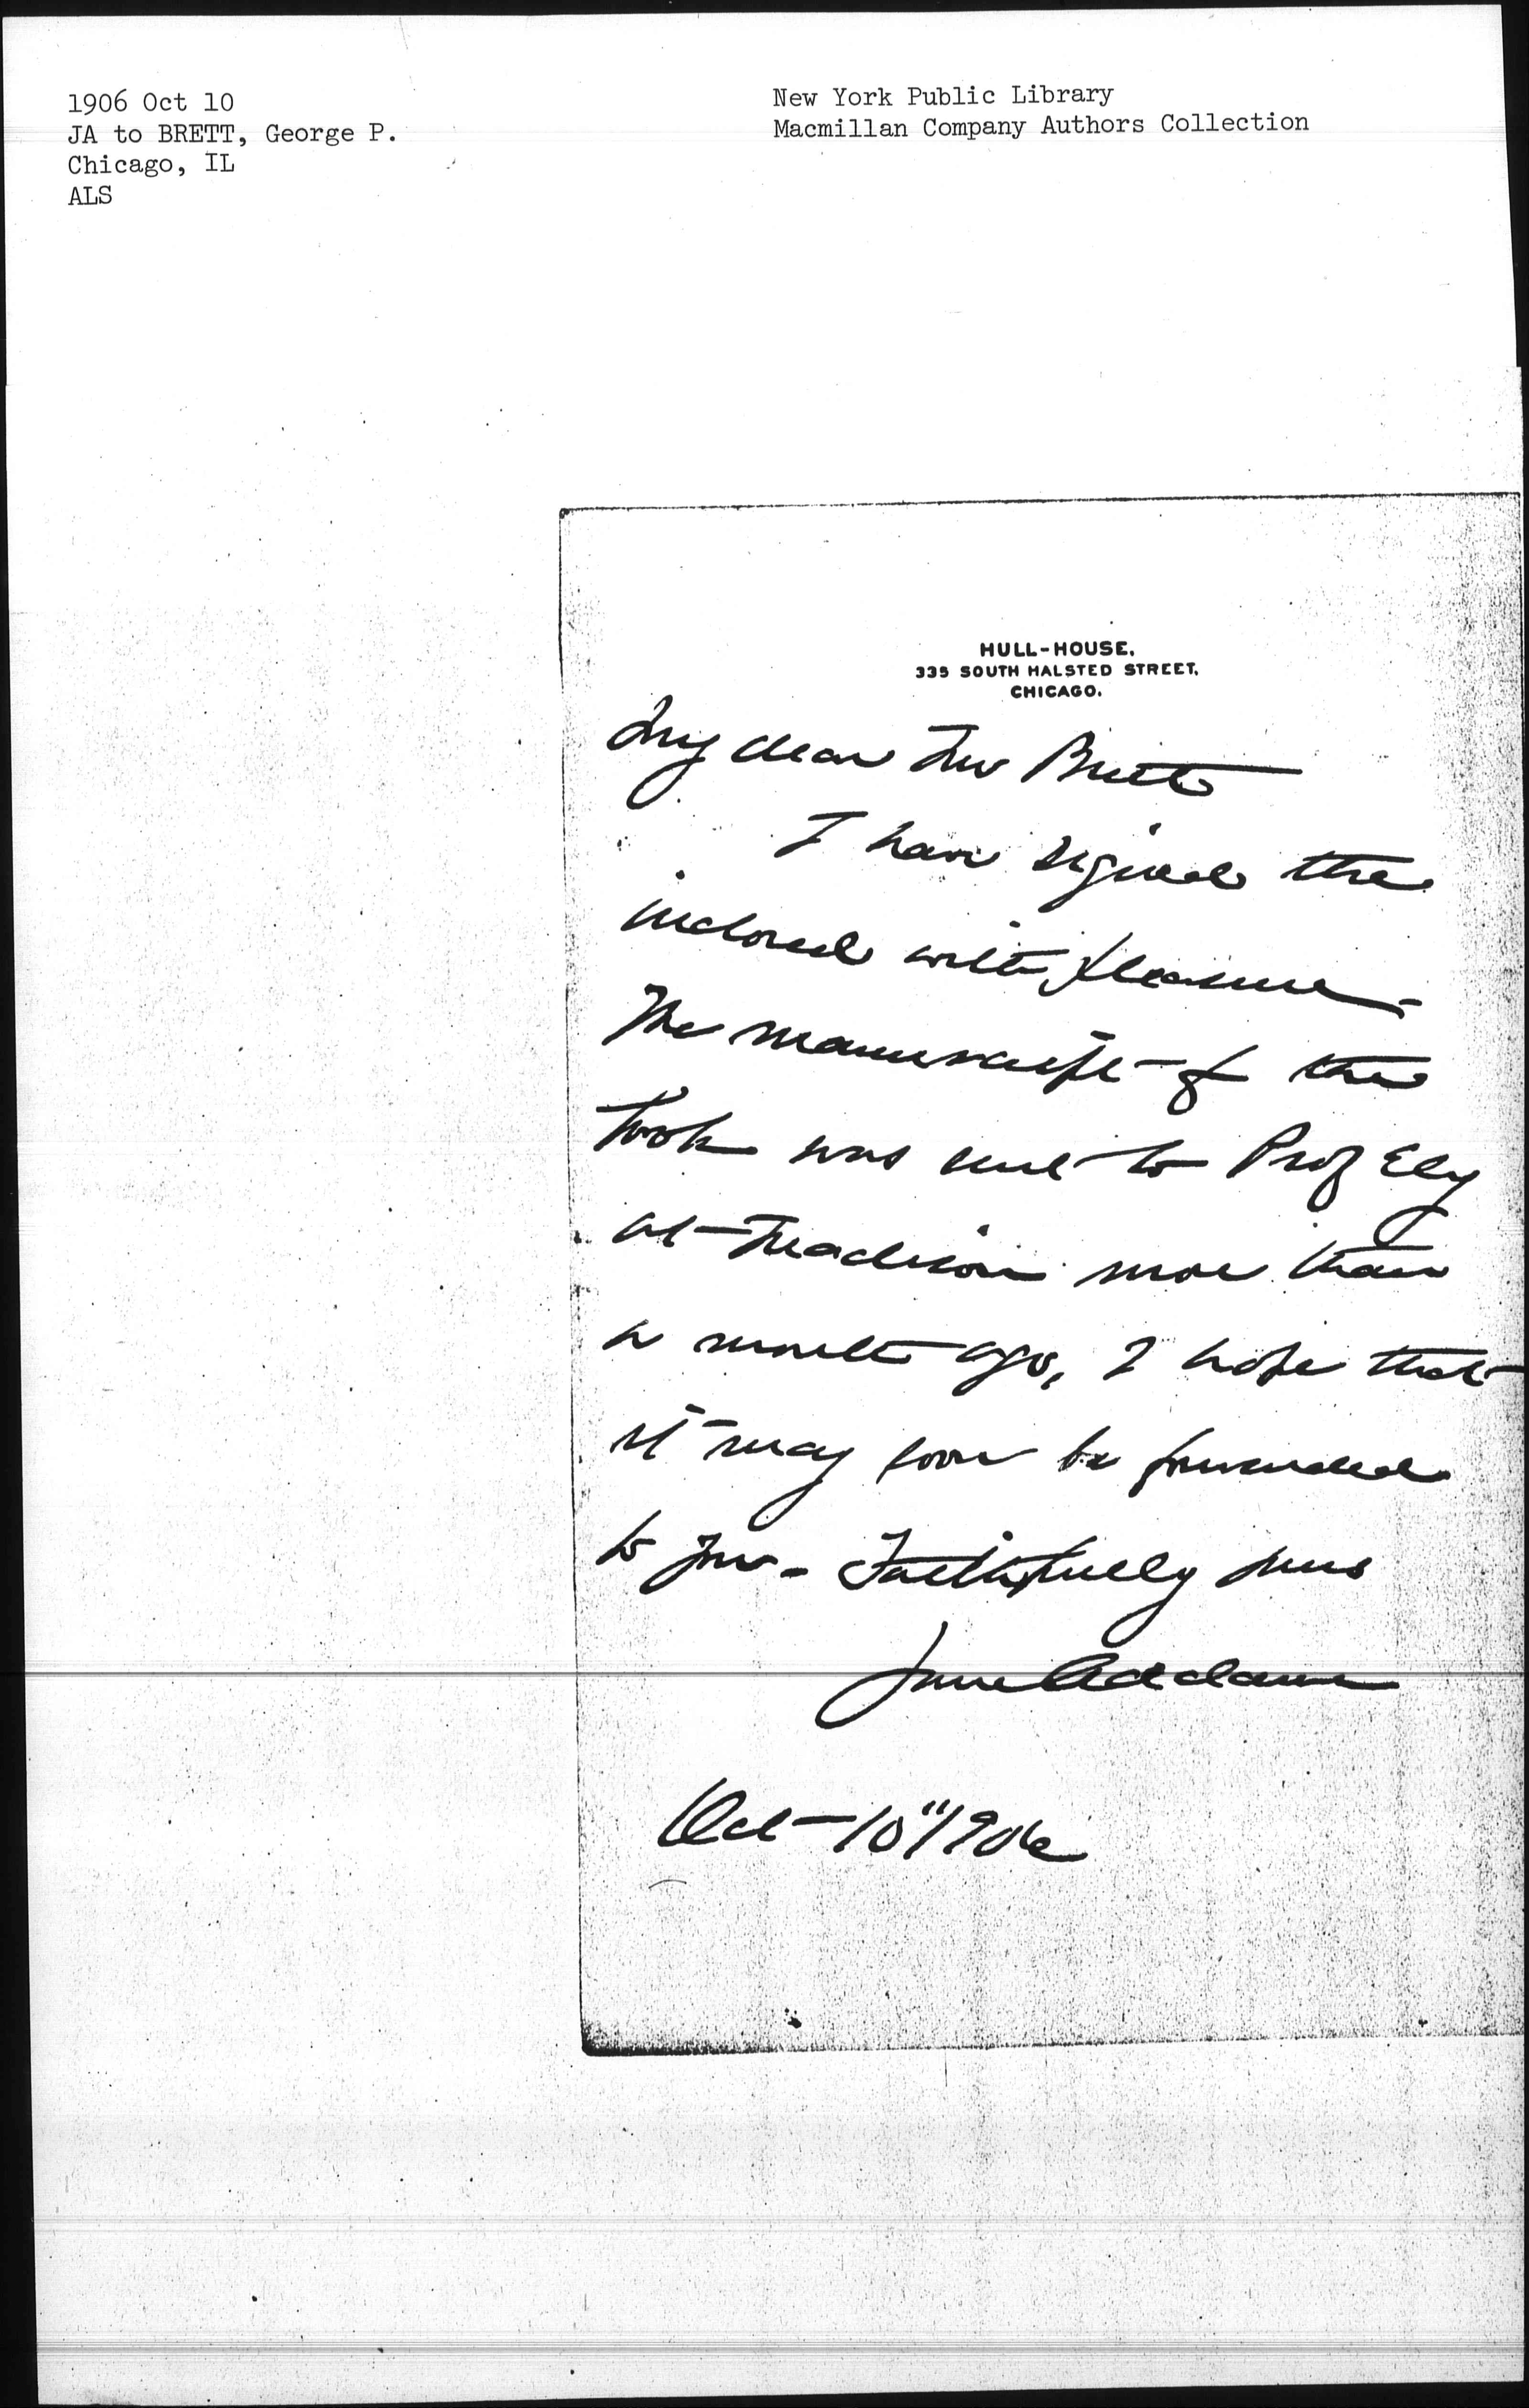 1906 Oct 10
JA to BRETT, George P.
Chicago, IL
ALS
New York Public Library
Macmillan Company Authors Collection
HULL-HOUSE.
335 SOUTH HALSTED STREET,
CHICAGO.
My dear Mr Brett
I have signed the
inclosed with pleasure -
The manuscript of the
book was sent to Prof Ely
at Madison more than
a month ago, I hope that
it may soon be forwarded
to you - Faithfully yours
Jane Addams
Oct 10" 1906